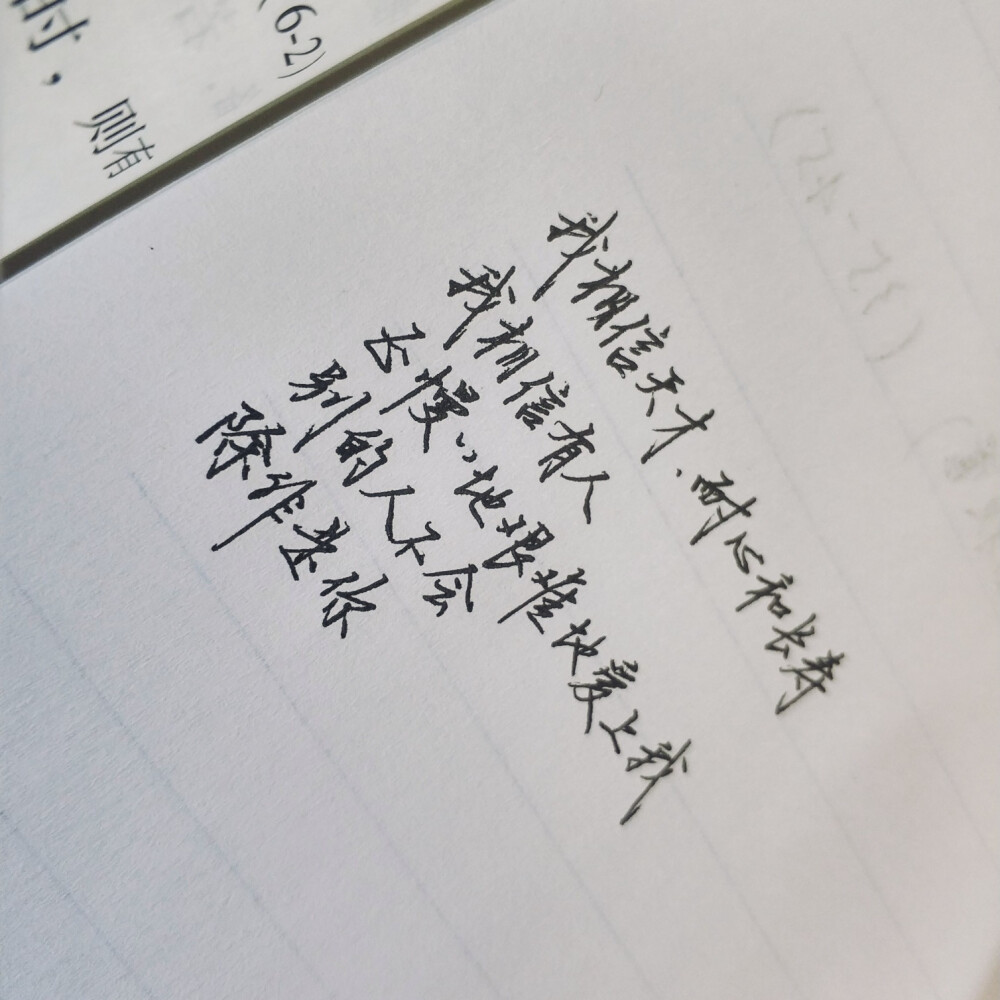 (6-2)
时，则有
我相信天才、耐心和长寿
我相信有人
正慢々地艰难地爱上我
别的人不会
除非是你